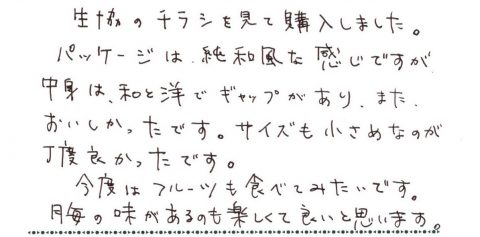 生協のチラシを見て購入しました。
パッケージは、純和風な感じですが
中身は、和と洋でギャップがあり、また、
おいしかったです。サイズも小さめなのが
丁度良かったです。
今度はフルーツも食べてみたいです。
月毎の味があるのも楽しくて良いと思います。